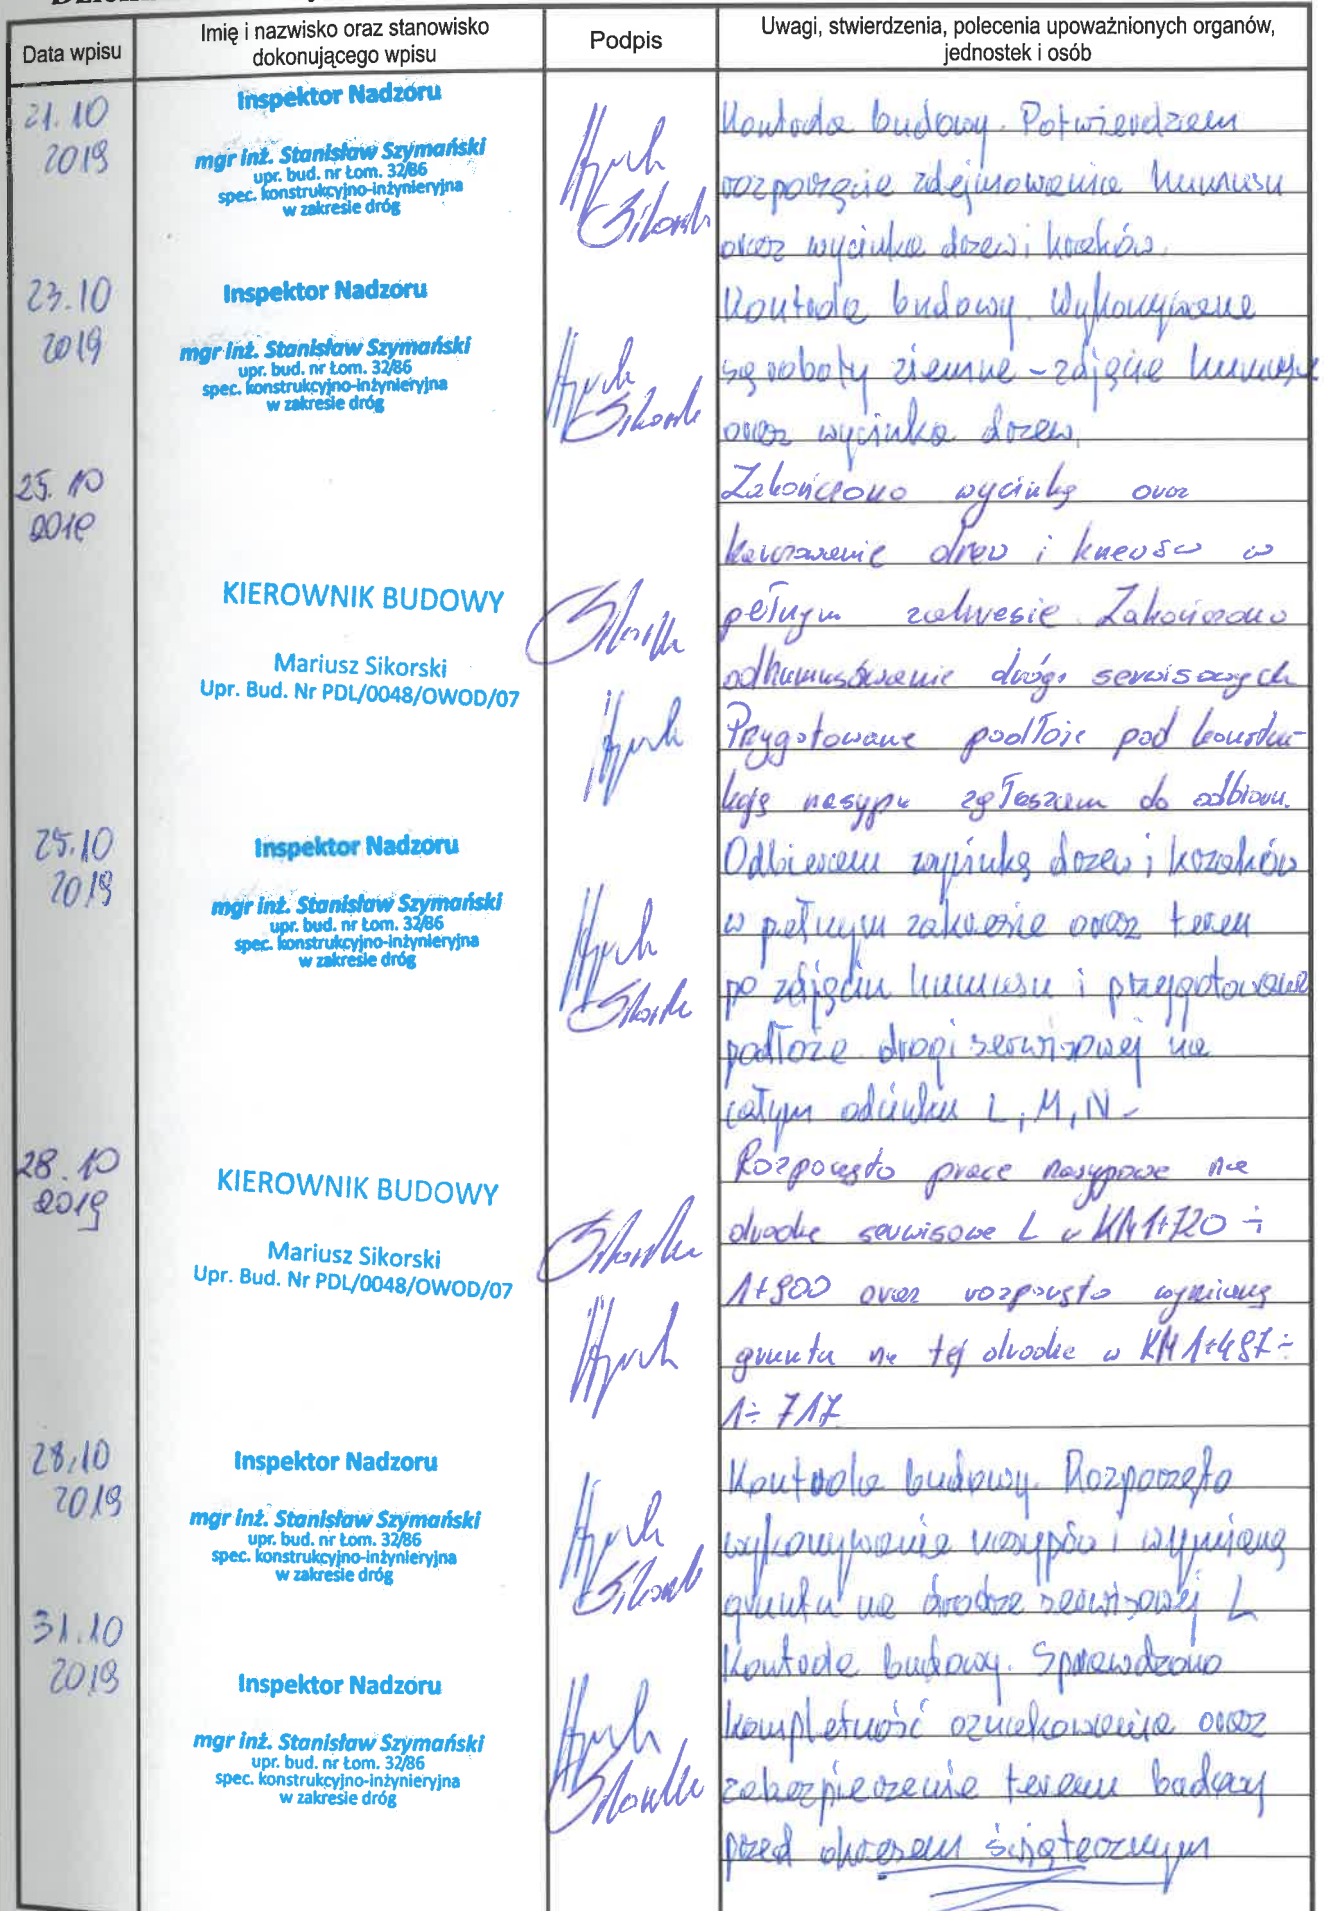 Data wpisu
Imię i nazwisko oraz stanowisko
dokonującego wpisu
Podpis
Uwagi, stwierdzenia, polecenia upoważnionych organów,
jednostek i osób
21.10
2019
Inspektor Nadzoru
mgr inż. Stanisław Szymański
upr. bud. nr Łom. 32/86
spec. konstrukcyjno-inżynieryjna
w zakresie dróg
Kontrola budowy. Potwierdzam
rozpoczęcie zdejmowania humusu
oraz wycinka drzew i krzaków.
23.10
2019
Inspektor Nadzoru
mgr inż. Stanisław Szymański
upr. bud. nr Łom. 32/86
spec. konstrukcyjno-inżynieryjna
w zakresie dróg
Kontrola budowy. Wykonywane
są roboty ziemne - zdjęcie humusu
oraz wycinka drzew.
25.10
2019
KIEROWNIK BUDOWY
Mariusz Sikorski
Upr. Bud. Nr PDL/0048/OWOD/07
Zakończono wycinkę oraz
karczowanie drzew i krzewów w
pełnym zakresie. Zakończono
odhumusowanie dróg serwisowych
Przygotowane podłoże pod konstru-
kcję nasypu zgłaszam do odbioru.
25.10
2019
Inspektor Nadzoru
mgr inż. Stanisław Szymański
upr. bud. nr Łom. 32/86
spec. konstrukcyjno-inżynieryjna
w zakresie dróg
Odbieram wycinkę drzew i krzaków
w pełnym zakresie oraz teren
po zdjęciu humusu i przygotowane
podłoże drogi serwisowej na
całym odcinku L, M, N -
28.10
2019
KIEROWNIK BUDOWY
Mariusz Sikorski
Upr. Bud. Nr PDL/0048/OWOD/07
Rozpoczęto prace nasypowe na
drodze serwisowe L w KM 1+720 ÷
1+900 oraz rozpoczęto wymianę
gruntu na tej drodze w KM 1+487 ÷
1÷717
28.10
2019
Inspektor Nadzoru
mgr inż. Stanisław Szymański
upr. bud. nr Łom. 32/86
spec. konstrukcyjno-inżynieryjna
w zakresie dróg
Kontrola budowy. Rozpoczęto
wykonywanie nasypów i wymianę
gruntu na drodze serwisowej L
31.10
2019
Inspektor Nadzoru
mgr inż. Stanisław Szymański
upr. bud. nr Łom. 32/86
spec. konstrukcyjno-inżynieryjna
w zakresie dróg
Kontrola budowy. Sprawdzono
kompletność oznakowania oraz
zabezpieczenie terenu budowy
przed okresem świątecznym